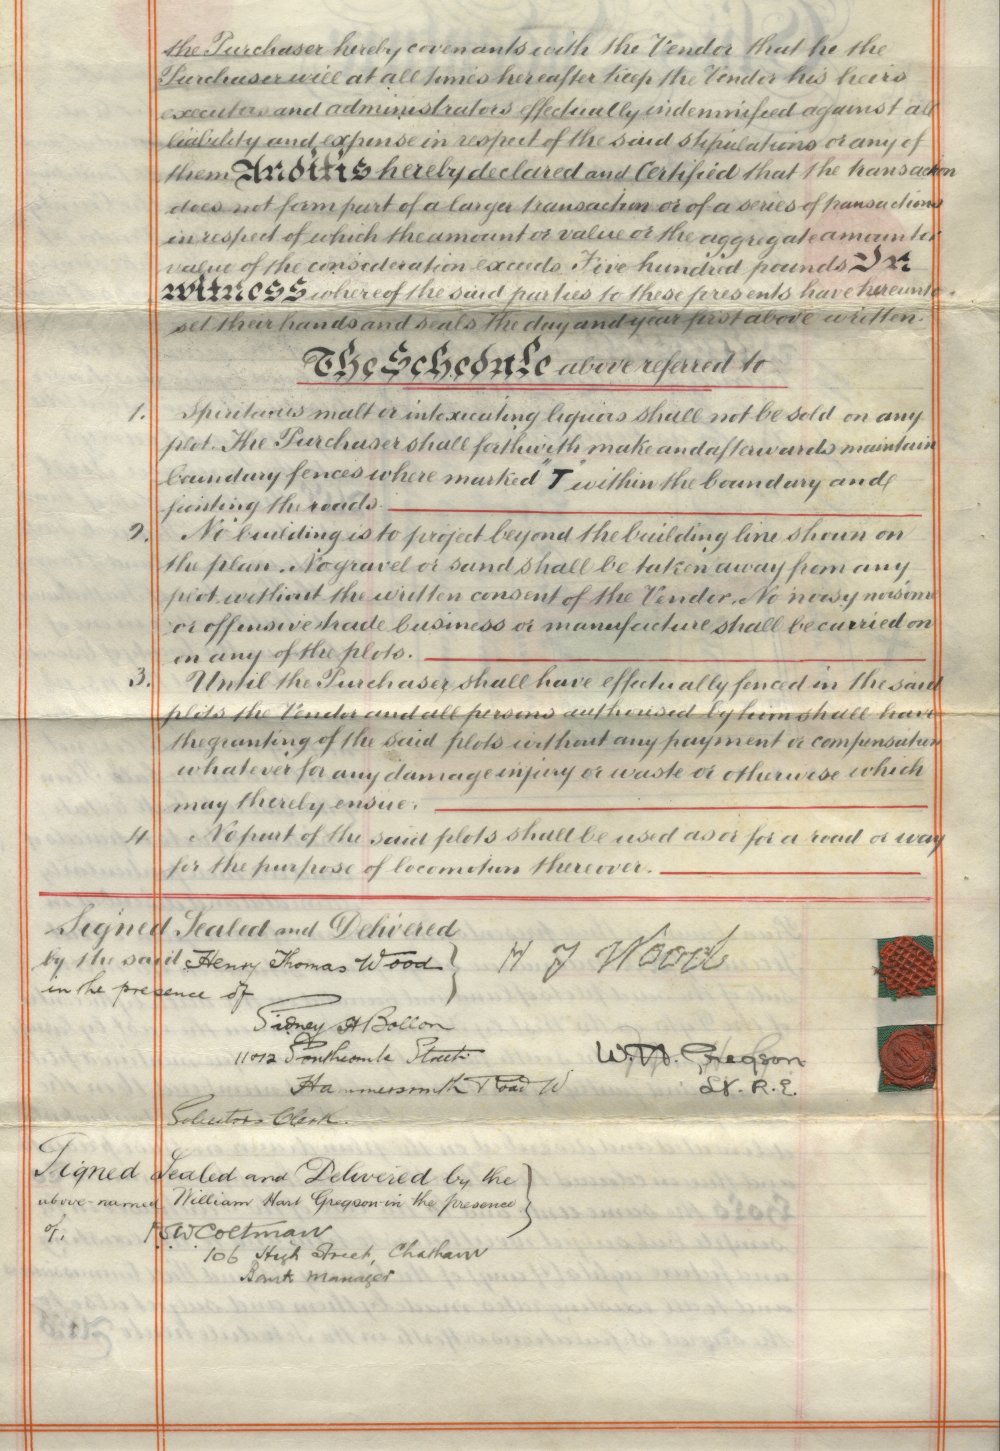 the Purchaser hereby covenants with the Vendor that he the
Purchaser will at all times hereafter keep the Vendor his heirs
executors and administrators effectually indemnified against all
liability and expense in respect of the said stipulations or any of
them And it is hereby declared and Certified that the transaction
does not form part of a larger transaction or of a series of transactions
in respect of which the amount or value or the aggregate amount or
value of the consideration exceeds Five hundred pounds In
witness whereof the said parties to these presents have hereunto
set their hands and seals the day and year first above written.
The Schedule above referred to
1. Spirituous malt or intoxicating liquors shall not be sold on any
plot. The Purchaser shall forthwith make and afterwards maintain
boundary fences where marked "T" within the boundary and
the roads.
2. No building is to project beyond the building line shown on
the plan. No gravel or sand shall be taken away from any
plot without the written consent of the Vendor. No noisy noisome
or offensive trade business or manufacture shall be carried on
on any of the plots.
3. Until the Purchaser shall have effectually fenced in the said
plots the Vendor and all persons authorised by him shall have
the granting of the said plots without any payment or compensation
whatever for any damage injury or waste or otherwise which
may thereby ensue.
4 No part of the said plots shall be used as or for a road or way
for the purpose of locomotion thereover.
Signed Sealed and Delivered
by the said Henry Thomas Wood
in the presence of
H J Wood
Sidney H Bollon
11 & 12 Southcombe Street
Hammersmith Road W
Solicitors Clerk.
W. H. Gregson
Lt. R.E.
Signed Sealed and Delivered by the
above-named William Hart Gregson in the presence
of:
W Coltman
106 High Street, Chatham
Bank Manager